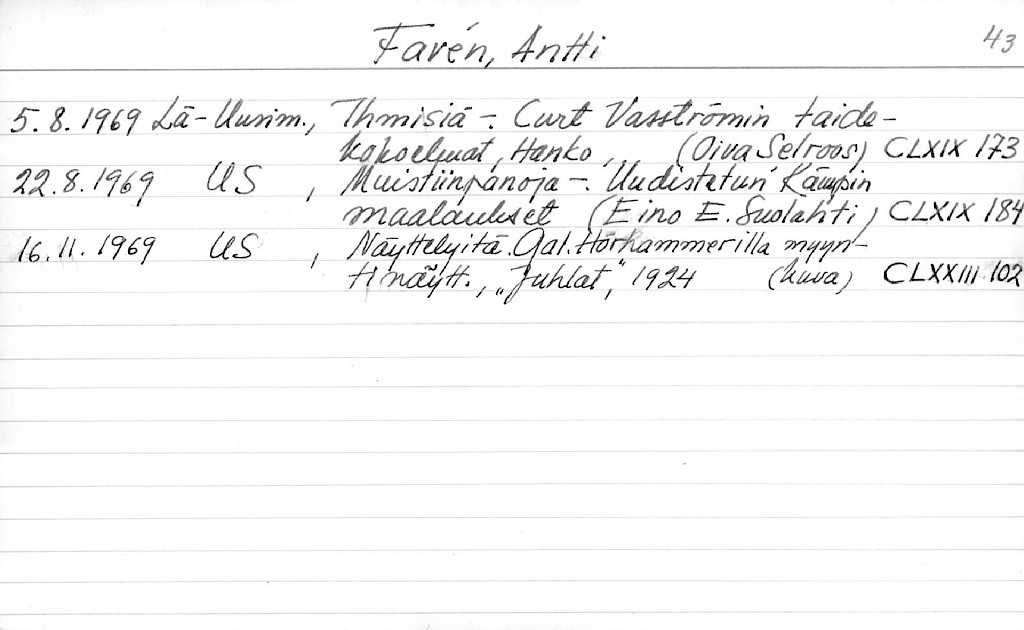 Favén, Antti 43
5.8.1969 Lä-Uusim., Ihmisiä -. Curt Vasströmin taide-
kokoelmat, Hanko, (Oiva Selroos) CLXIX 173
22.8.1969 US , Muistiinpanoja -. Uudistetun Kämpin
maalaukset (Eino E. Suolahti) CLXIX 184
16.11.1969 US , Näyttelyitä. Gal. Hörhammerilla myyn-
tinäytt., "Juhlat", 1924 (kuva) CLXXIII 102